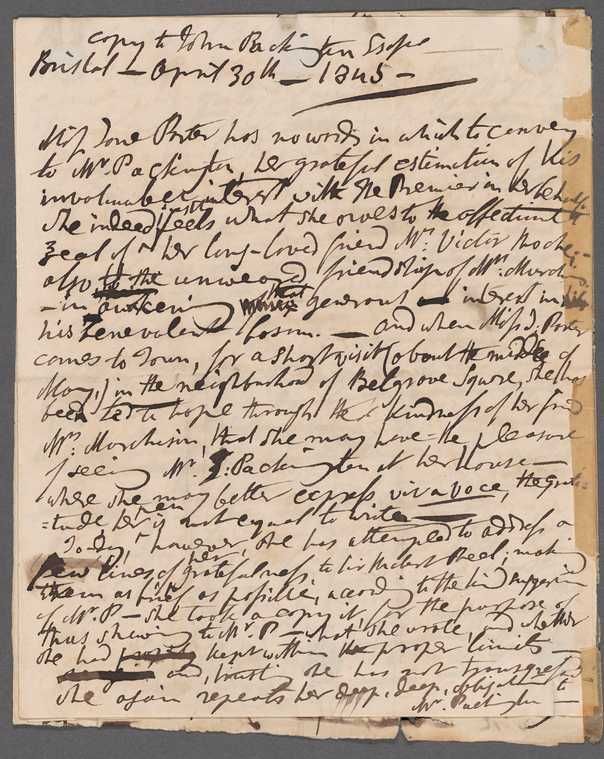 copy to John Packington Esqre
Bristol – April 30th – 1845 –
Miss Jane Porter has no words in which to convey
to Mr. Packington, her grateful estimation of his
invaluable interest with the Premier in her behalf
She indeed feels what she owes to the affectionate
zeal of her long-loved friend Mr. Victor
also to the unwearied friendship of Mrs. Murch
– in awakening that generous interest in
his benevolent bosom. – and when Miss J. Porter
comes to Town, for a short visit (about the middle of
May,) in the neighbourhood of Belgrove Square, she has
been led to hope through the kindness of her friend
Mrs. Murchison, that she may have the pleasure
of seeing Mr. J. Packington at her house –
where she may better express viva voce, the grati=
=tude her pen is not equal to write
Today, however, she has attempted to address a
few lines of her gratefulness to Sir Robert Peel; making
them as brief as possible, according to the kind suggestion
of Mr. P – she took a copy of it, for the purpose of
thus shewing to Mr. P – what she wrote, and whether
she had kept within the proper limits –
and, trusting she has not transgressed –
she again repeats her deep, deep, obligation to
Mr. Packington –